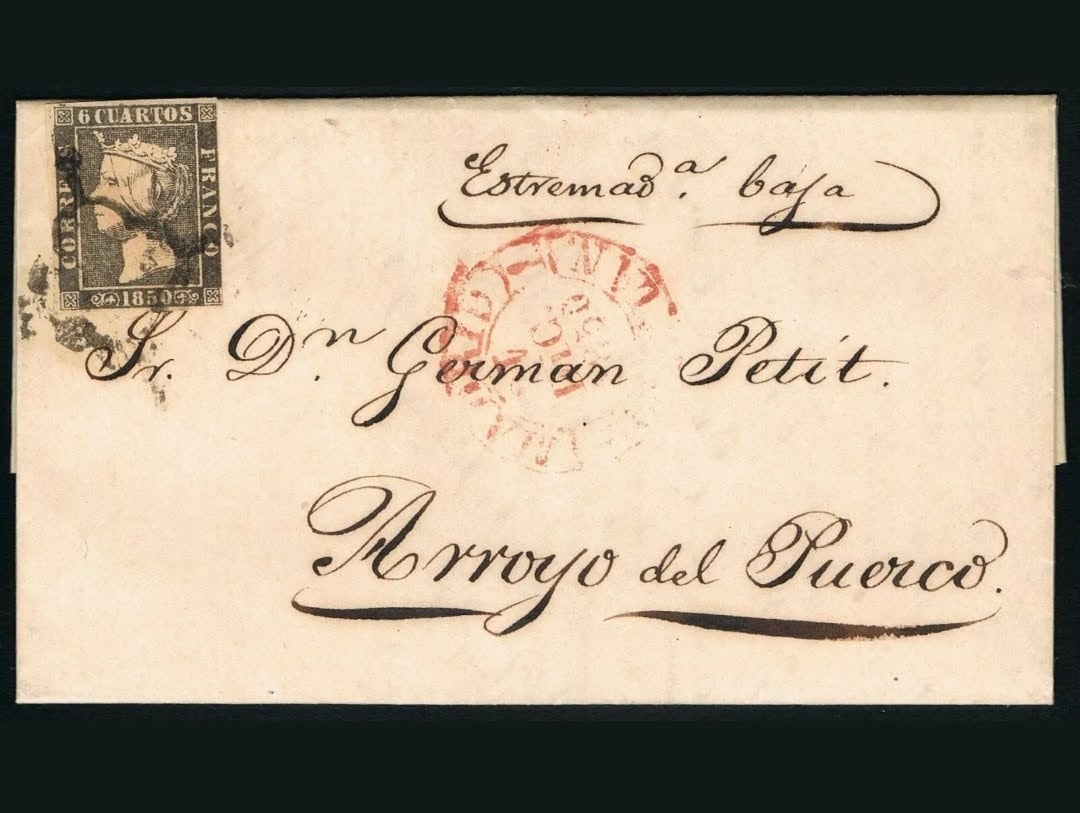 6 CUARTOS
CORREOS
FRANCO
1850
Estremad.ª baja
Sr. Dn. German Petit.
Arroyo del Puerco.